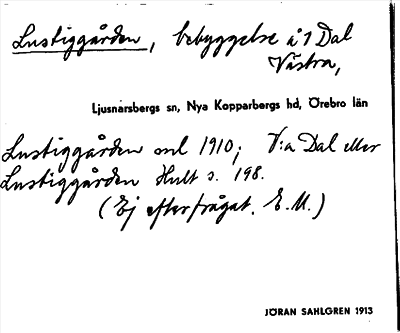 Lustiggården, bebyggelse å 1 Dal
Västra,
Ljusnarsbergs sn, Nya Kopparbergs hd, Örebro län
Lustiggården ml 1910; V:a Dal eller
Lustiggården Hult s. 198.
(Ej efterfrågat. E. M.)
JÖRAN SAHLGREN 1913